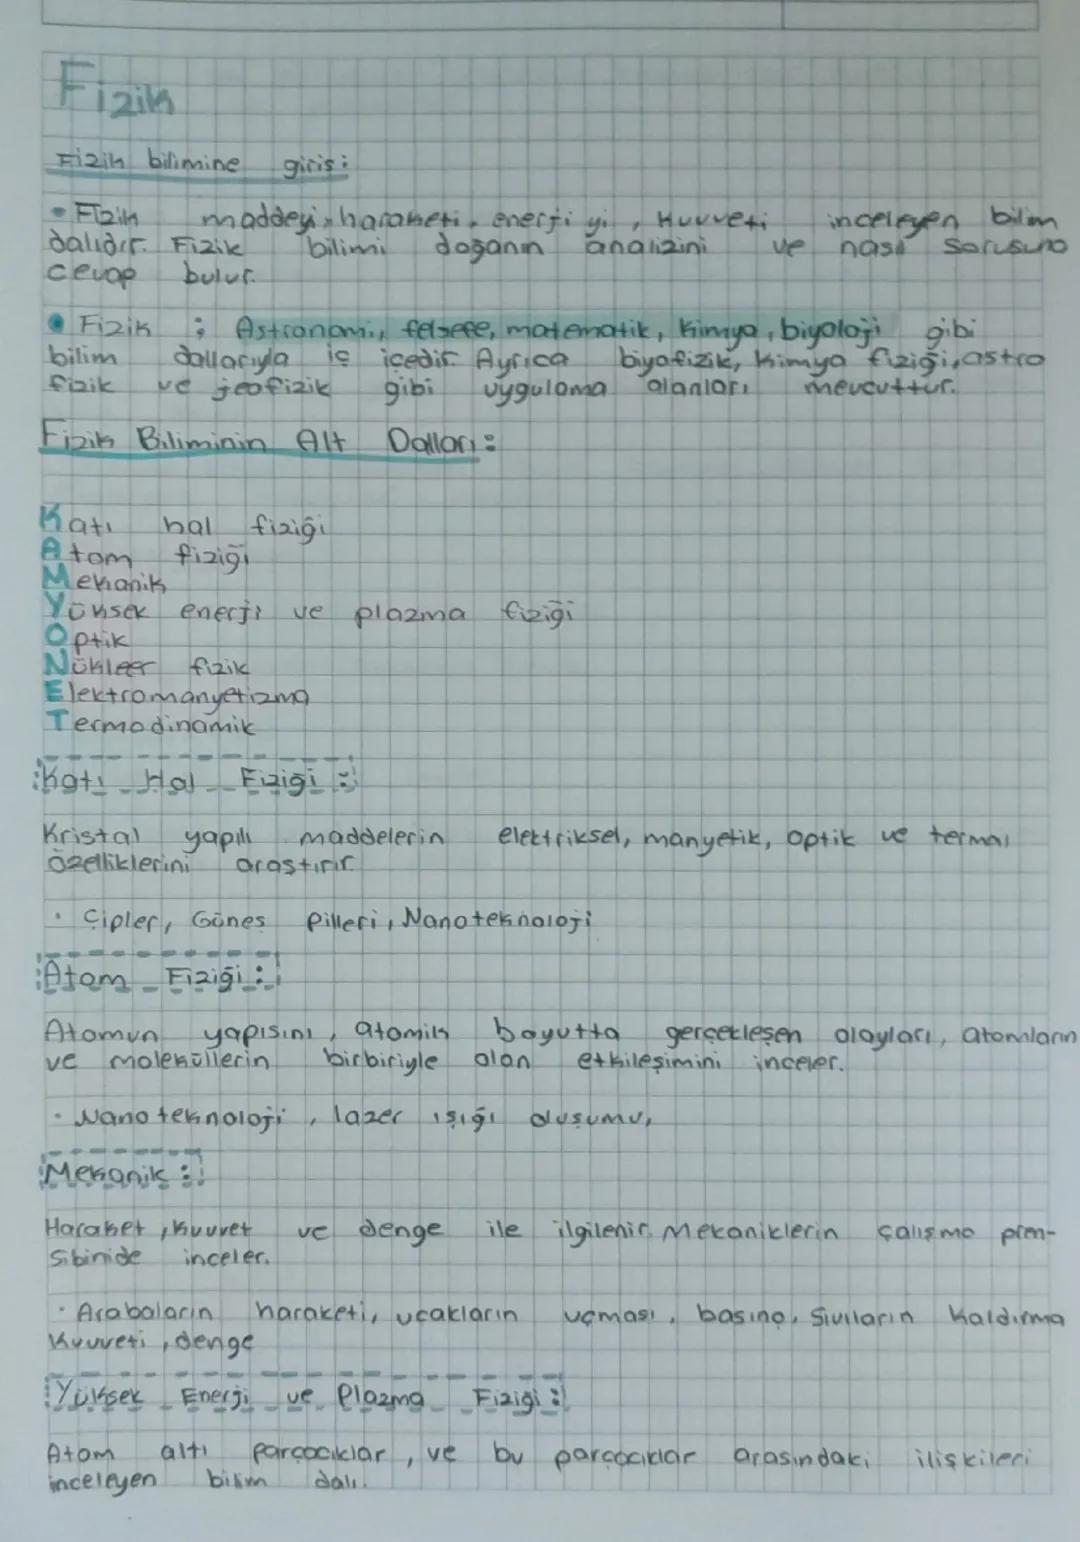 Fizik
Fizik bilimine giriş:
• Fizik maddeyi, haraketi, enerji yi, kuvveti inceleyen bilim
dalıdır. Fizik bilimi doğanın analizini ve nasıl sorusuna
cevap bulur.
• Fizik ; Astronomi, felsefe, matematik, kimya, biyoloji gibi
bilim dallarıyla iç içedir. Ayrıca biyofizik, kimya fiziği, astro
fizik ve jeofizik gibi uygulama alanları mevcuttur.
Fizik Biliminin Alt Dalları:
Katı hal fiziği
Atom fiziği
Mekanik
Yüksek enerji ve plazma fiziği
Optik
Nükleer fizik
Elektromanyetizma
Termodinamik
Katı Hal Fiziği:
Kristal yapılı maddelerin elektriksel, manyetik, optik ve termal
özelliklerini araştırır.
• Çipler, Güneş Pilleri, Nanoteknoloji
Atom Fiziği:
Atomun yapısını, atomik boyutta gerçekleşen olayları, atomların
ve moleküllerin birbiriyle olan etkileşimini inceler.
• Nano teknoloji, lazer ışığı oluşumu,
Mekanik:
Haraket, kuvvet ve denge ile ilgilenir. Mekaniklerin çalışma pren-
sibinide inceler.
• Arabaların haraketi, uçakların uçması, basınç, sıvıların kaldırma
kuvveti, denge
Yüksek Enerji ve Plazma Fiziği:
Atom altı parçacıklar, ve bu parçacıklar arasındaki ilişkileri
inceleyen bilim dalı.